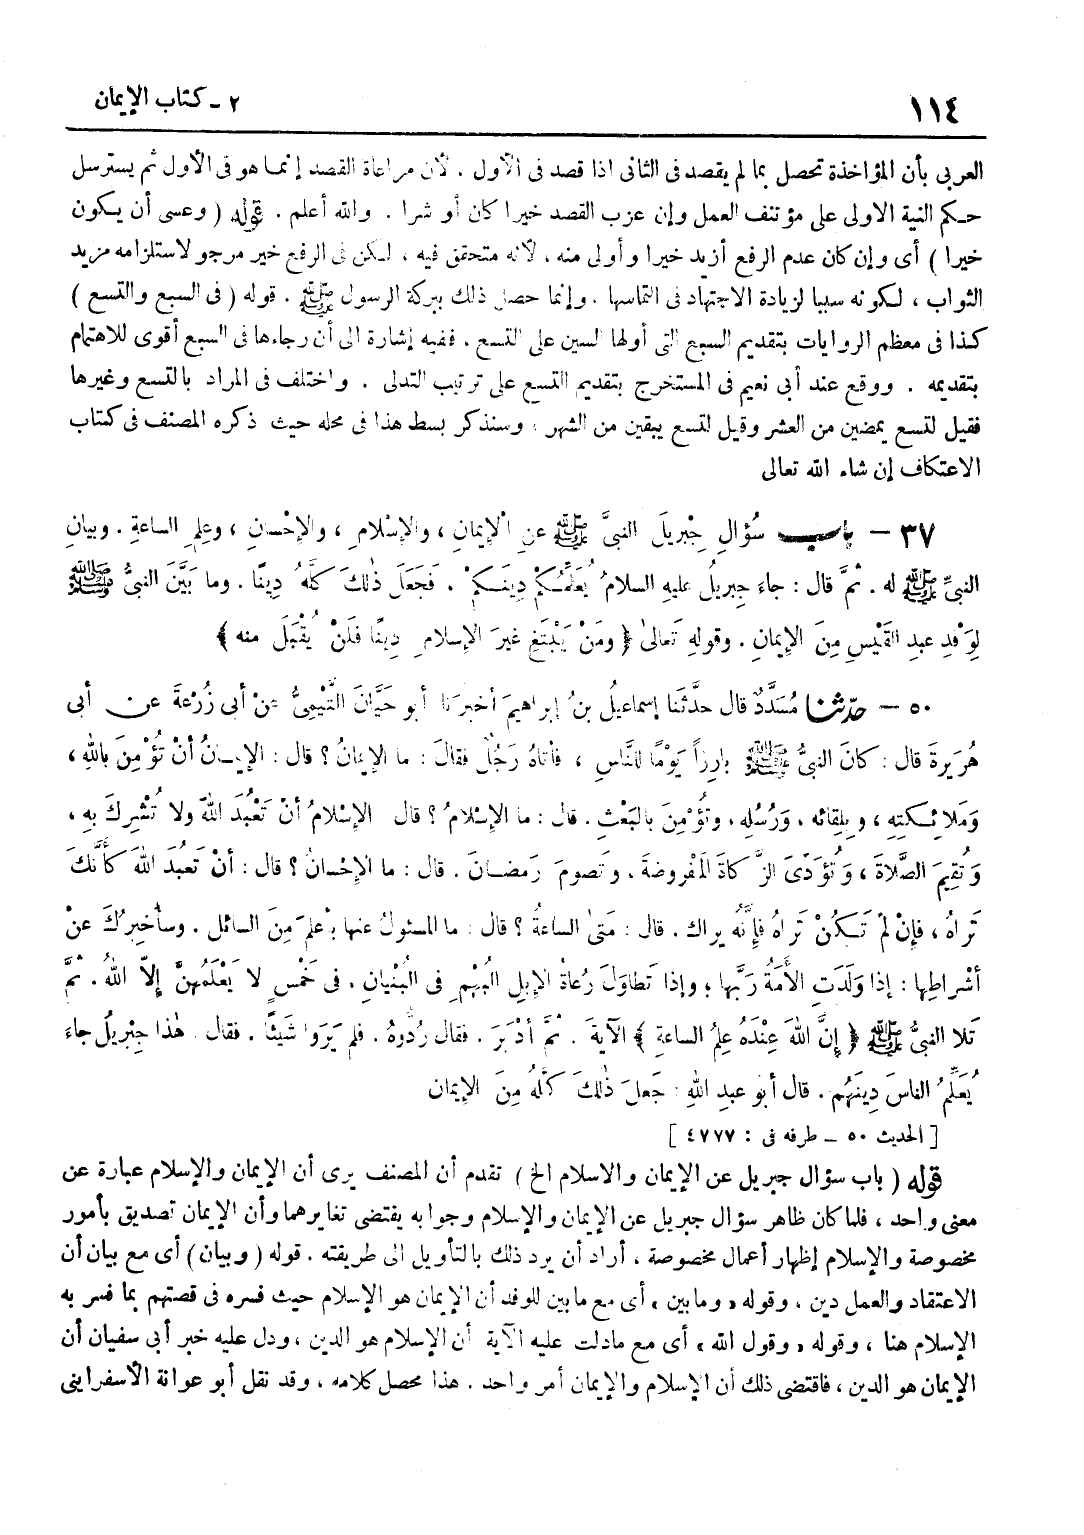 ١١٤
٢ - كتاب الإيمان
العربى بأن المؤاخذة تحصل بما لم يقصد فى الثانى اذا قصد فى الأول . لأن مراعاة القصد إنما هو فى الأول ثم يسترسل
حكم النية الاولى على مؤتنف العمل وإن عزب القصد خيرا كان أو شرا . والله أعلم . قوله ( وعسى أن يكون
خيرا ) أى وإن كان عدم الرفع أزيد خيرا وأولى منه ، لأنه متحقق فيه ، لكن فى الرفع خير مرجو لاستلزامه مزيد
الثواب ، لكونه سببا لزيادة الاجتهاد فى التماسها . وإنما حصل ذلك ببركة الرسول ﷺ . قوله ( فى السبع والتسع )
كذا فى معظم الروايات بتقديم السبع التى أولها السين على التسع . ففيه إشارة الى أن رجاءها فى السبع أقوى للاهتمام
بتقديمه . ووقع عند أبى نعيم فى المستخرج بتقديم التسع على ترتيب التدلى . واختلف فى المراد بالتسع وغيرها
فقيل لتسع يمضين من العشر وقيل لتسع يبقين من الشهر ، وسنذكر بسط هذا فى محله حيث ذكره المصنف فى كتاب
الاعتكاف إن شاء الله تعالى
٣٧ - باب سُؤالِ جِبريلَ النبىَّ ﷺ عنِ الإيمانِ ، والإسْلامِ ، والإحْسانِ ، وعِلمِ الساعةِ . وبيانِ
النبىِّ ﷺ له . ثمَّ قال : جاءَ جِبريلُ عليهِ السلامُ يُعَلِّمُكُمْ دِينَكمْ . فَجَعلَ ذٰلكَ كلَّهُ دِينًا . وما بَيَّنَ النبىُّ ﷺ
لِوَفدِ عبدِ القَيْسِ مِنَ الإيمانِ . وقولهِ تَعالىٰ ﴿ ومَنْ يَبْتَغِ غيرَ الإسلامِ دِينًا فَلَنْ يُقْبَلَ منه ﴾
٥٠ - حدّثنا مُسَدَّدٌ قال حدَّثَنا إسماعيلُ بنُ إبراهيمَ أخبرَنا أبو حَيَّانَ التَّيْمِىُّ عنْ أبى زُرْعةَ عن أبى
هُرَيرةَ قال : كانَ النبىُّ ﷺ بارِزاً يَوْمًا للنَّاسِ ، فأتاهُ رَجُلٌ فقالَ : ما الإيمانُ ؟ قال : الإيمانُ أنْ تُؤْمِنَ باللهِ ،
وَمَلائكتِهِ ، وبِلقائه ، وَرُسُلِه ، وتُؤْمِنَ بالبَعْثِ . قال : ما الإسْلامُ ؟ قال الإسْلامُ أنْ تَعْبُدَ اللهَ ولا تُشْرِكَ بهِ ،
وَتُقِيمَ الصَّلاةَ ، وَتُؤَدِّىَ الزَّكاةَ المَفْروضةَ ، وتَصومَ رَمضانَ . قال : ما الإحْسانُ ؟ قال : أنْ تَعبُدَ اللهَ كأنَّكَ
تَراهُ ، فإنْ لمْ تَكُنْ تَراهُ فإنَّهُ يراك . قال : مَتىٰ الساعةُ ؟ قال : ما المسئولُ عنها بأعلَمَ مِنَ السائلِ . وسأُخبِرُكَ عنْ
أشْراطِها : إذا وَلَدَتِ الأَمَةُ رَبَّها ؛ وإذا تَطاوَلَ رُعاةُ الإبِلِ البُهْمِ فى البُنْيانِ . فى خَمْسٍ لا يَعْلَمُهنَّ إلّا اللهُ . ثمَّ
تَلا النبىُّ ﷺ ﴿ إنَّ اللهَ عِنْدَهُ علِمُ الساعةِ ﴾ الآيةَ . ثمَّ أدْبَرَ . فقال رُدُّوهُ . فلم يَرَوا شَيئًا . فقال هٰذا جِبْريلُ جاءَ
يُعَلِّمُ الناسَ دِينَهُم . قال أبو عبدِ اللهِ : جعلَ ذٰلكَ كلَّهُ مِنَ الإيمان
[ الحديث ٥٠ - طرفه فى : ٤٧٧٧ ]
قوله ( باب سؤال جبريل عن الإيمان والاسلام الخ ) تقدم أن المصنف يرى أن الإيمان والإسلام عبارة عن
معنى واحد ، فلما كان ظاهر سؤال جبريل عن الإيمان والإسلام وجوابه يقتضى تغايرهما وأن الإيمان تصديق بأمور
مخصوصة والإسلام إظهار أعمال مخصوصة ، أراد أن يرد ذلك بالتأويل الى طريقته . قوله ( وبيان ) أى مع بيان أن
الاعتقاد والعمل دين ، وقوله « وما بين » أى مع ما بين للوفد أن الإيمان هو الإسلام حيث فسره فى قصتهم بما فسر به
الإسلام هنا ، وقوله « وقول الله » أى مع ما دلت عليه الآية أن الإسلام هو الدين ، ودل عليه خبر أبى سفيان أن
الإيمان هو الدين ، فاقتضى ذلك أن الإسلام والإيمان أمر واحد . هذا محصل كلامه ، وقد نقل أبو عوانة الأسفراينى